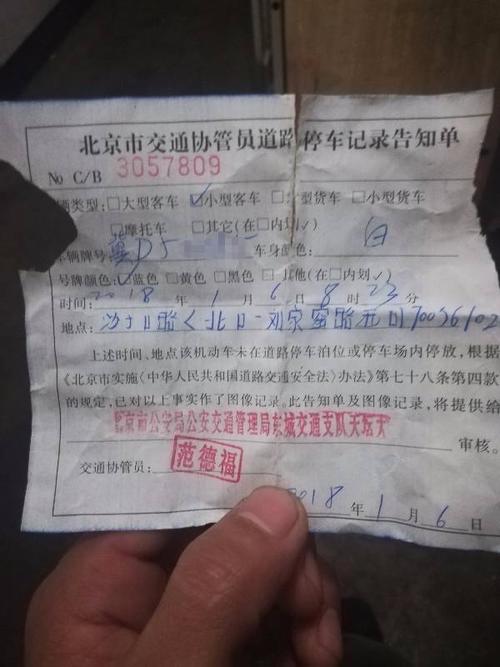 北京市交通协管员道路停车记录告知单
No C/B 3057809
辆类型：□大型客车 ☑小型客车 □大型货车 □小型货车
□摩托车 □其它(在□内划√)
车辆牌号：冀D5 车身颜色：白
号牌颜色：☑蓝色 □黄色 □黑色 □其他(在□内划√)
时间：2018 年 1 月 6 日 8 时 23 分
地点：沙子口路(北口-刘家窑路北口)
上述时间、地点该机动车未在道路停车泊位或停车场内停放，根据
《北京市实施〈中华人民共和国道路交通安全法〉办法》第七十八条第四款
的规定，已对以上事实作了图像记录。此告知单及图像记录，将提供给
北京市公安局公安交通管理局东城交通支队天坛大
审核。
交通协管员：范德福
2018 年 1 月 6 日